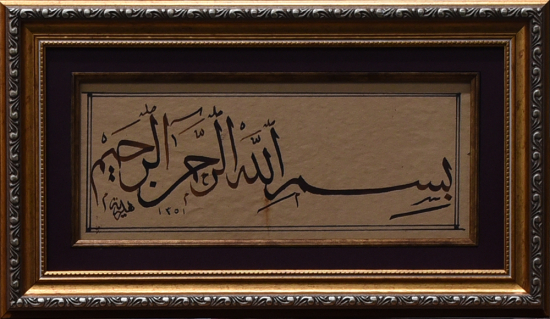 بسم الله الرحمن الرحيم
١٢٥١